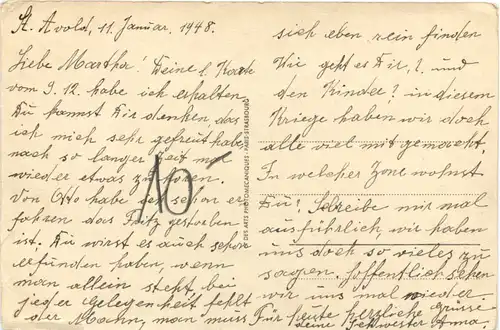 St. Avold, 11. Januar, 1948.
Liebe Martha! Deine l. Karte
vom 9.12. habe ich erhalten.
Du kannst Dir denken, das
ich mich sehr gefreut habe,
nach so langer Zeit mal
wieder etwas zu hören.
Von Otto habe ich schon er
fahren das Fritz gestorben
ist. Du wirst es auch schon
erfunden haben, wenn
man allein steht, bei
jeder Gelegenheit fehlt
der Mann, man muss
sich eben rein finden
Wie geht es Dir,?, und
den Kinder? in diesem
Kriege haben wir doch
alle viel mit gemacht.
In welcher Zone wohnst
Du? Schreibe mir mal
ausführlich, wir haben
uns doch so vieles zu
sagen. Hoffentlich sehen
wir uns mal wieder.
Für heute herzliche Grüsse
deine Schwester Anna
10
DES ARTS PHOTOMECANIQUES - PARIS-STRASBOURG